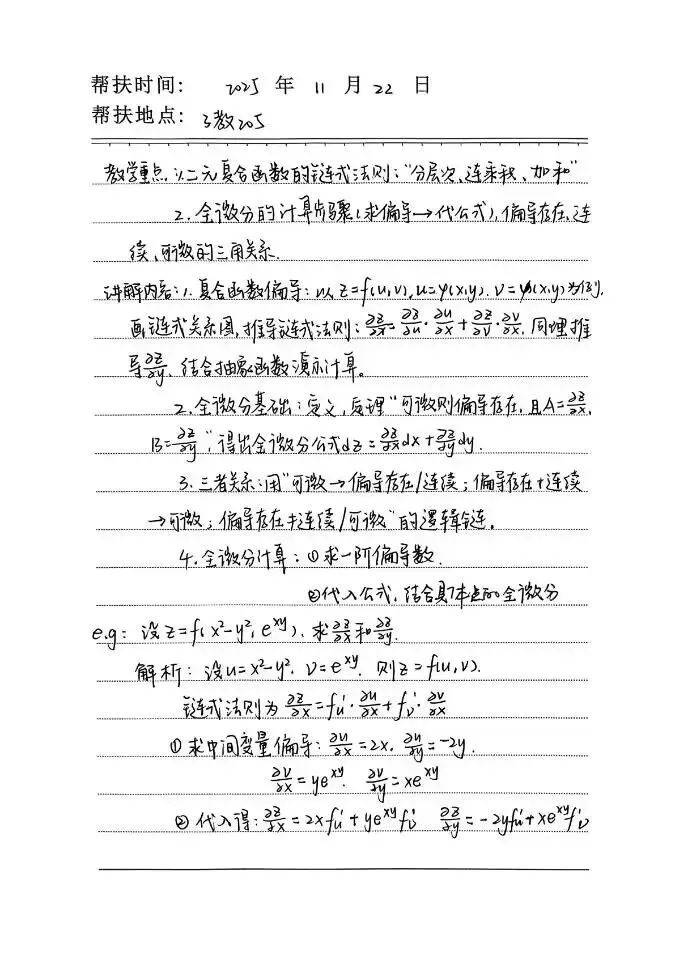 帮扶时间： 2025 年 11 月 22 日
帮扶地点： 3教205
教学重点：1.二元复合函数的链式法则："分层次、连乘积、加和"
2.全微分的计算步骤(求偏导→代公式)，偏导存在、连
续、可微的三角关系.
讲解内容：1.复合函数偏导：以z=f(u,v),u=φ(x,y).v=ψ(x,y)为例,
画链式关系图,推导链式法则：∂z/∂x=∂z/∂u·∂u/∂x+∂z/∂v·∂v/∂x.同理推
导∂z/∂y、结合抽象函数演示计算。
2.全微分基础：定义,定理"可微则偏导存在,且A=∂z/∂x,
B=∂z/∂y",得出全微分公式dz=∂z/∂xdx+∂z/∂ydy.
3.三者关系:用"可微→偏导存在/连续；偏导存在+连续
→可微；偏导存在≠连续/可微"的逻辑链。
4.全微分计算：①求一阶偏导数.
②代入公式.结合具体点的全微分
e.g：设z=f(x²-y²,e^xy).求∂z/∂x和∂z/∂y.
解析：设u=x²-y².v=e^xy.则z=f(u,v).
链式法则为∂z/∂x=f'u·∂u/∂x+f'v·∂v/∂x
①求中间变量偏导：∂u/∂x=2x.∂u/∂y=-2y.
∂v/∂x=ye^xy.∂v/∂y=xe^xy
②代入得：∂z/∂x=2xf'u+ye^xyf'v ∂z/∂y=-2yf'u+xe^xyf'v